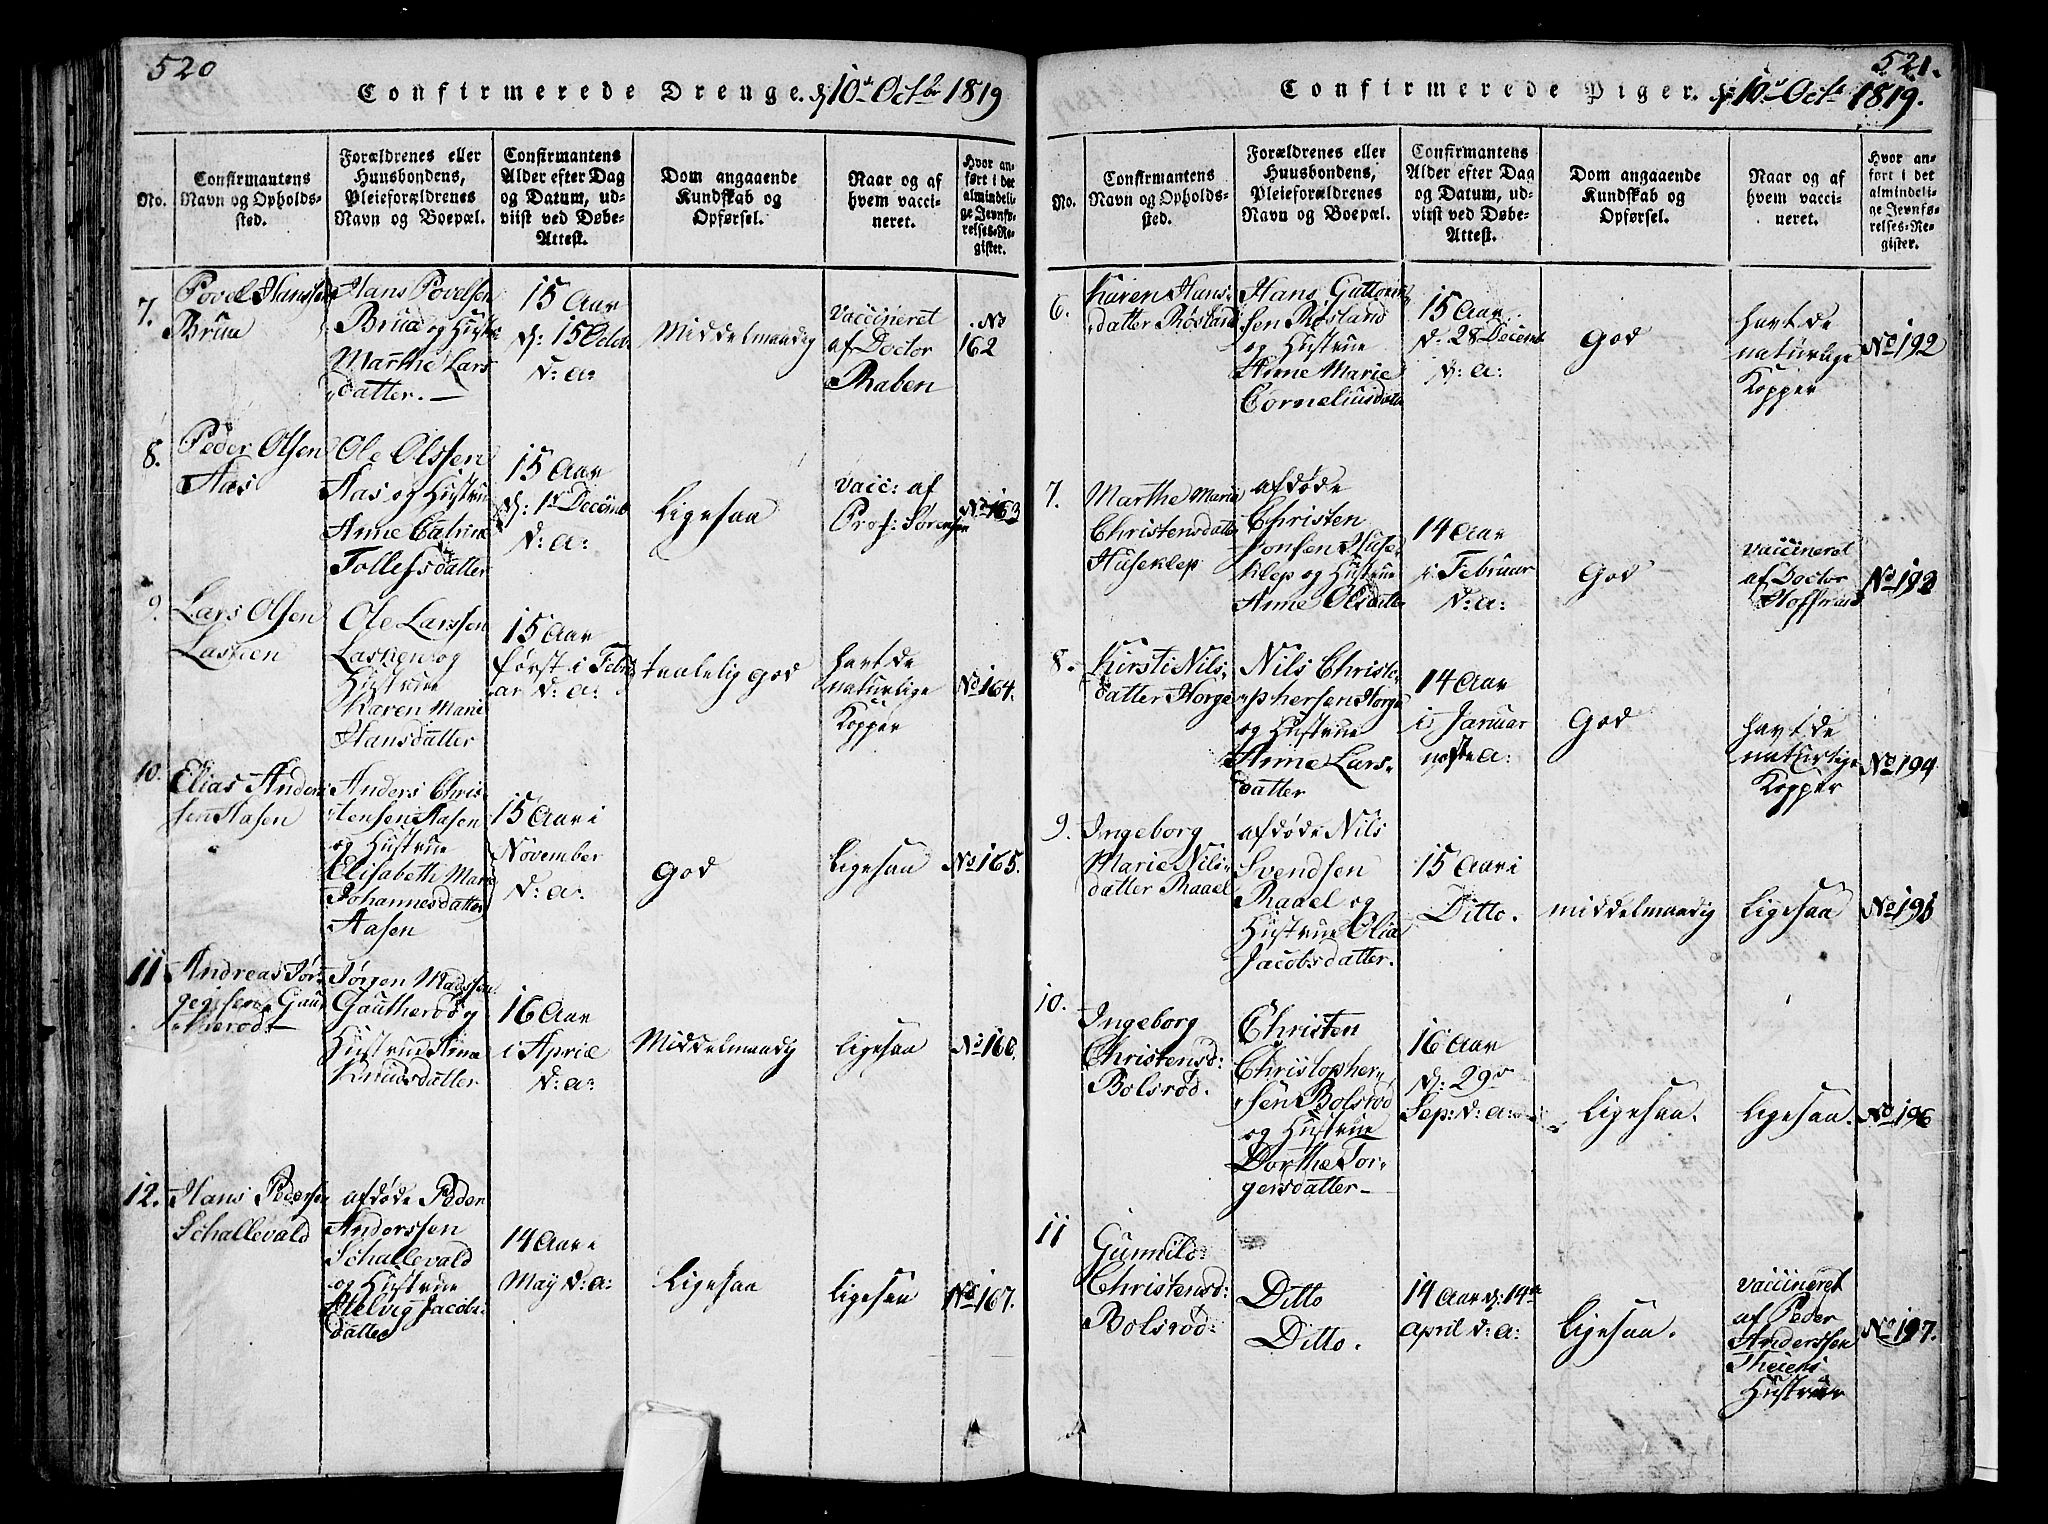 520
Confirmerede Drenge. d 10d Octbr 1819
No.
Confirmantens
Navn og Opholds-
sted.
Forældrenes eller
Huusbondens,
Pleieforældrenes
Navn og Boepæl.
Confirmantens
Alder efter Dag
og Datum, ud-
viist ved Døbe-
Attest.
Dom angaaende
Kundskab og
Opførsel.
Naar og af
hvem vacci-
neret.
Hvor an-
ført i det
almindeli-
ge Jevnfø-
relses-Re-
gister.
7.
Povel Hanssen
Bruu
Hans Povelsen
Bruu og Hustru
Marthe Lars
datter.
15 Aar
d: 15 Octbr
d: a:
Middelmaadig
Vaccineret
af Doctor
Raben
No
162
8.
Peder Olsen
Aas
Ole Olssen
Aas og Hustrue
Anne Catrine
Tollefsdatter
15 Aar
d: 1d Decemb
d: a:
Ligesaa
Vacc: af
Prof: Sørensen
No 163
9.
Lars Olsen
Laskien
Ole Larssen
Laskien og
Hustrue
Karen Marie
Hansdatter
15 Aar
først i Febru
ar d: a:
taalelig god
havt de
naturlige
Kopper
No 164.
10.
Elias Ander
sen Aasen
Anders Chris-
tensen Aasen
og Hustrue
Elisabeth Marie
Johannesdatter
Aasen
15 Aar i
November
d: a:
God
Ligesaa
No 165.
11
Andreas Jør-
gegisen Gaut
herod
Jørgen Madssen
Gautherod og
Hustrue Anne
Knudsdatter
16 Aar
i April
d: a:
Middelmaadig
Ligesaa
No 166.
12.
Hans Pedersen
Schallevald
afdøde Peder
Anderssen
Schallevald
og Hustrue
Helvig Jacobs-
datter
14 Aar i
May d: a:
Ligesaa
Ligesaa
No 167.
521.
Confirmerede Piger. d 10d Octb 1819.
No.
Confirmantens
Navn og Opholds-
sted.
Forældrenes eller
Huusbondens,
Pleieforældrenes
Navn og Boepæl.
Confirmantens
Alder efter Dag
og Datum, ud-
viist ved Døbe-
Attest.
Dom angaaende
Kundskab og
Opførsel.
Naar og af
hvem vacci-
neret.
Hvor an-
ført i det
almindeli-
ge Jevnfø-
relses-Re-
gister.
6.
Karen Hans-
datter Røsland
Hans Guttorm
sen Røsland
og Hustrue
Anne Marie
Corneliusdatter
15 Aar
d. 28 Decemb
d: a:
God
havt de
naturlige
Kopper
No 192
7.
Marthe Maria
Christensdatter
Huseklep
afdøde
Christen
Jonsen Huse-
klep og Hustrue
Anne Olsdatter
14 Aar
i Februar
d: a:
God
Vaccineret
af Doctor
No 193
8.
Kirsti Nils-
datter Horge
Nils Christo-
phersen Horge
og Hustrue
Anne Lars-
datter
14 Aar
i Januar
næste a:
God
havt de
naturlige
Kopper
No 194
9.
Ingeborg
Marie Nils-
datter Raael
afdøde Nils
Svendsen
Raael og
Hustrue Olia
Jacobsdatter.
15 Aar i
Ditto.
middelmaadig
Ligesaa
No 195
10.
Ingeborg
Christensd:
Bolsrød.
Christen
Christopher-
sen Bolsrød
og Hustrue
Dorthe Tor-
gersdatter
16 Aar
d: 29d
Sep: d: a:
Ligesaa.
Ligesaa.
No 196
11
Gunnild
Christensd:
Bolsrød:
Ditto
Ditto.
14 Aar d: 14de
April d: a:
Ligesaa.
Vaccineret
af Peder
Anderssen
Theiens
Hustrue
No 197.